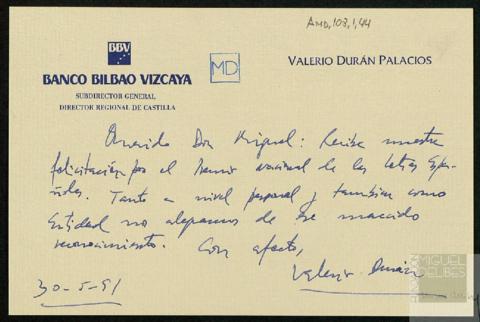 AMD,103,1,44
BBV
BANCO BILBAO VIZCAYA
SUBDIRECTOR GENERAL
DIRECTOR REGIONAL DE CASTILLA
MD
VALERIO DURÁN PALACIOS
Querido Don Miguel: Reciba nuestra
felicitación por el Premio Nacional de las Letras Espa-
ñolas. Tanto a nivel personal y también como
Entidad nos alegramos de ese merecido
reconocimiento. Con afecto,
Valerio Durán
30-5-91
MIGUEL
DELIBES